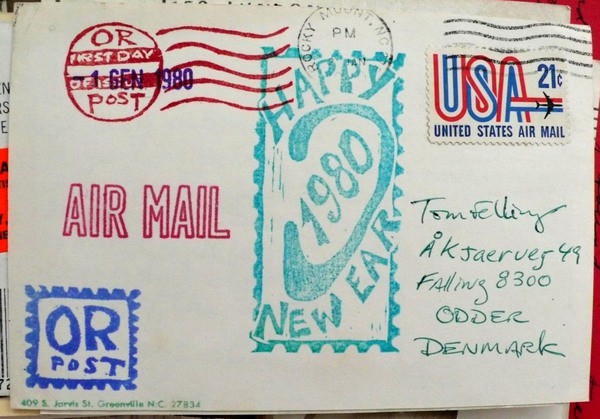 OR
FIRST DAY
OF ISSUE
POST
-1 GEN 1980
ROCKY MOUNT, NC
PM
HAPPY
1980
NEW EAR
USA 21¢
UNITED STATES AIR MAIL
AIR MAIL
Tom Elling
ÅKJaerveg 49
Falling 8300
ODDER
DENMARK
OR
POST
409 S. Jarvis St. Greenville N.C. 27834